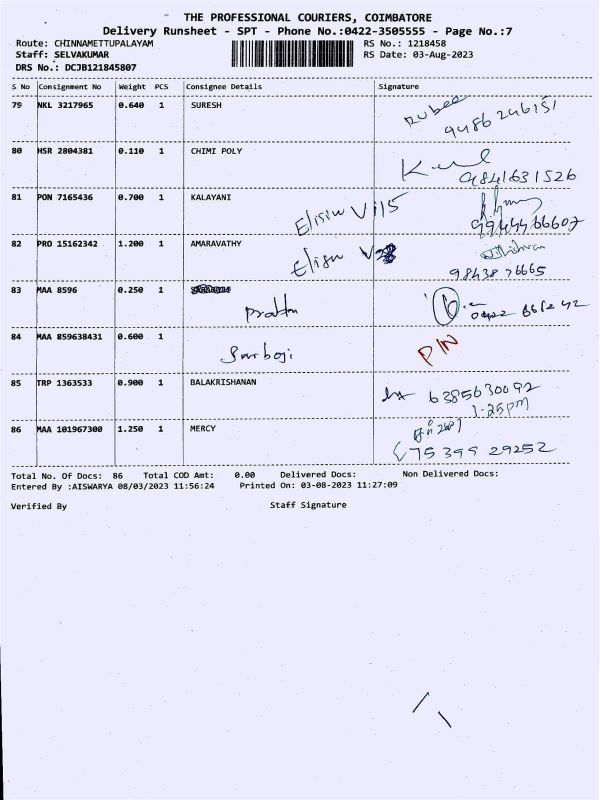 THE PROFESSIONAL COURIERS, COIMBATORE
Delivery Runsheet - SPT - Phone No.:0422-3505555 - Page No.:7
Route: CHINNAMETTUPALAYAM RS No.: 1218458
Staff: SELVAKUMAR RS Date: 03-Aug-2023
DRS No.: DCJB121845807
S No Consignment No Weight PCS Consignee Details Signature
79 NKL 3217965 0.640 1 SURESH Rubee
9486 246151
80 HSR 2804381 0.110 1 CHIMI POLY
9841631526
81 PON 7165436 0.700 1 KALAYANI
9944466607
82 PRO 15162342 1.200 1 AMARAVATHY
98438 76665
83 MAA 8596 0.250 1
84 MAA 859638431 0.600 1
PIN
85 TRP 1363533 0.900 1 BALAKRISHANAN 6385630092
1.25pm
86 MAA 101967300 1.250 1 MERCY
75399 29252
Total No. Of Docs: 86 Total COD Amt: 0.00 Delivered Docs: Non Delivered Docs:
Entered By :AISWARYA 08/03/2023 11:56:24 Printed On: 03-08-2023 11:27:09
Verified By Staff Signature